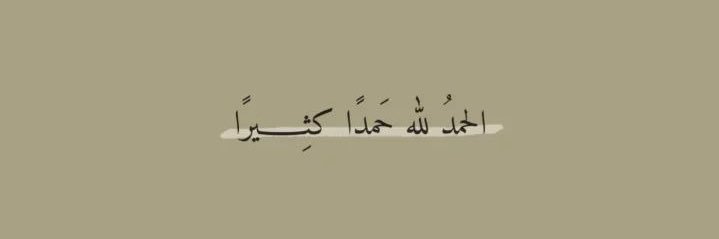 الحمدُ لله حَمدًا كثِيرًا